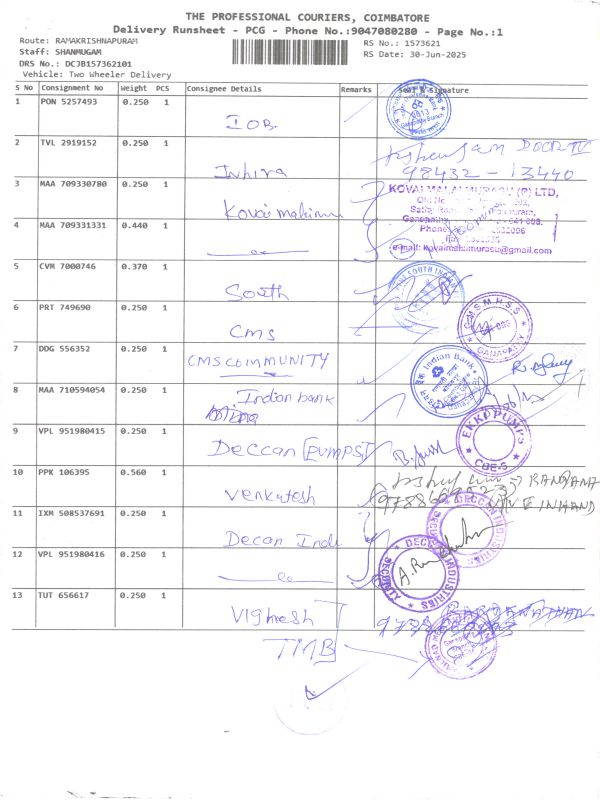 THE PROFESSIONAL COURIERS, COIMBATORE
Delivery Runsheet - PCG - Phone No.:9047080280 - Page No.:1
Route: RAMAKRISHNAPURAM
RS No.: 1573621
Staff: SHANMUGAM
RS Date: 30-Jun-2025
DRS No.: DCJB157362101
Vehicle: Two Wheeler Delivery
S No Consignment No Weight PCS Consignee Details Remarks Seal & Signature
1 PON 5257493 0.250 1
IOB
2 TVL 2919152 0.250 1
98432 - 13440
3 MAA 709330780 0.250 1
KOVAI MALAIMURASU (P) LTD,
Kovai
4 MAA 709331331 0.440 1
Phone
e-mail: kovaimalaimurasu@gmail.com
5 CVM 7000746 0.370 1
SOUTH INDIAN
South
6 PRT 749690 0.250 1
C.M.S.M.H.S.S
GANAPATHY
CMS
7 DDG 556352 0.250 1
CMS COMMUNITY
Indian Bank
8 MAA 710594054 0.250 1
Indian bank
9 VPL 951980415 0.250 1
EKKI PUMPS
CBE-6
Deccan [PUMPS]
10 PPK 106395 0.560 1
Venkatesh
11 IXM 508537691 0.250 1
DECCAN INDUSTRIES
SECURITY
Decan Indu
12 VPL 951980416 0.250 1
DECCAN INDUSTRIES
SECURITY
13 TUT 656617 0.250 1
Vighesh
TMB